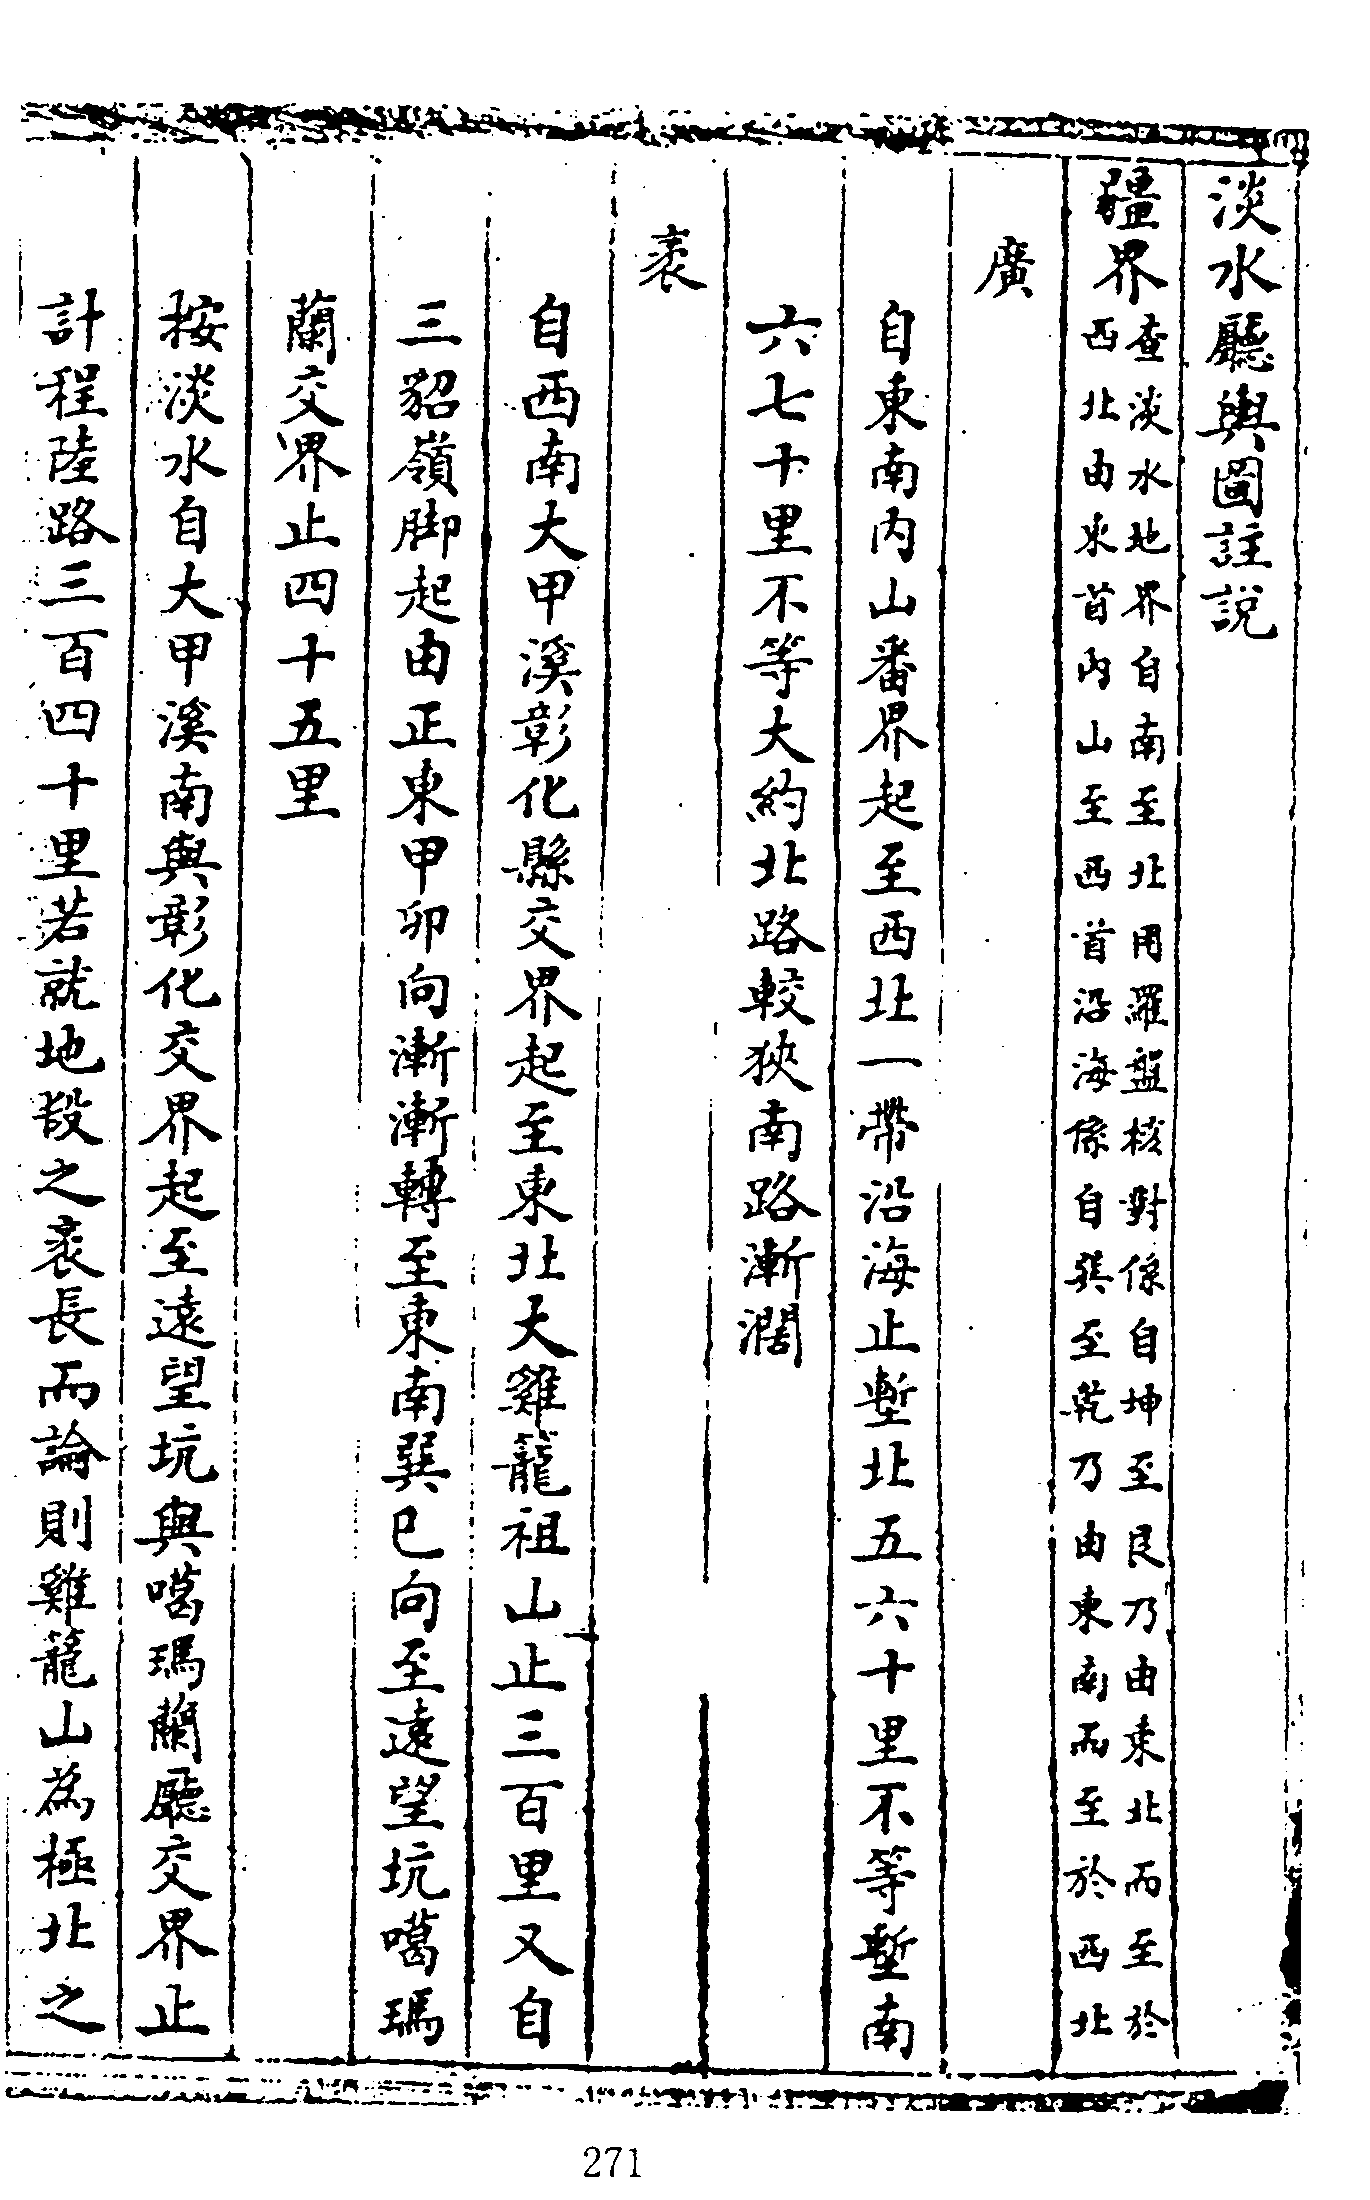 淡水廳輿圖註說
疆界查淡水地界自南至北用羅盤核對係自坤至艮乃由東北而至於
西北由東首內山至西首沿海係自巽至乾乃由東南而至於西北
廣
自東南內山番界起至西北一帶沿海止塹北五六十里不等塹南
六七十里不等大約北路較狹南路漸濶
袤
自西南大甲溪彰化縣交界起至東北大雞籠祖山止三百里又自
三貂嶺脚起由正東甲卯向漸漸轉至東南巽巳向至遠望坑噶瑪
蘭交界止四十五里
按淡水自大甲溪南與彰化交界起至遠望坑與噶瑪蘭廳交界止
計程陸路三百四十里若就地段之袤長而論則雞籠山為極北之
271